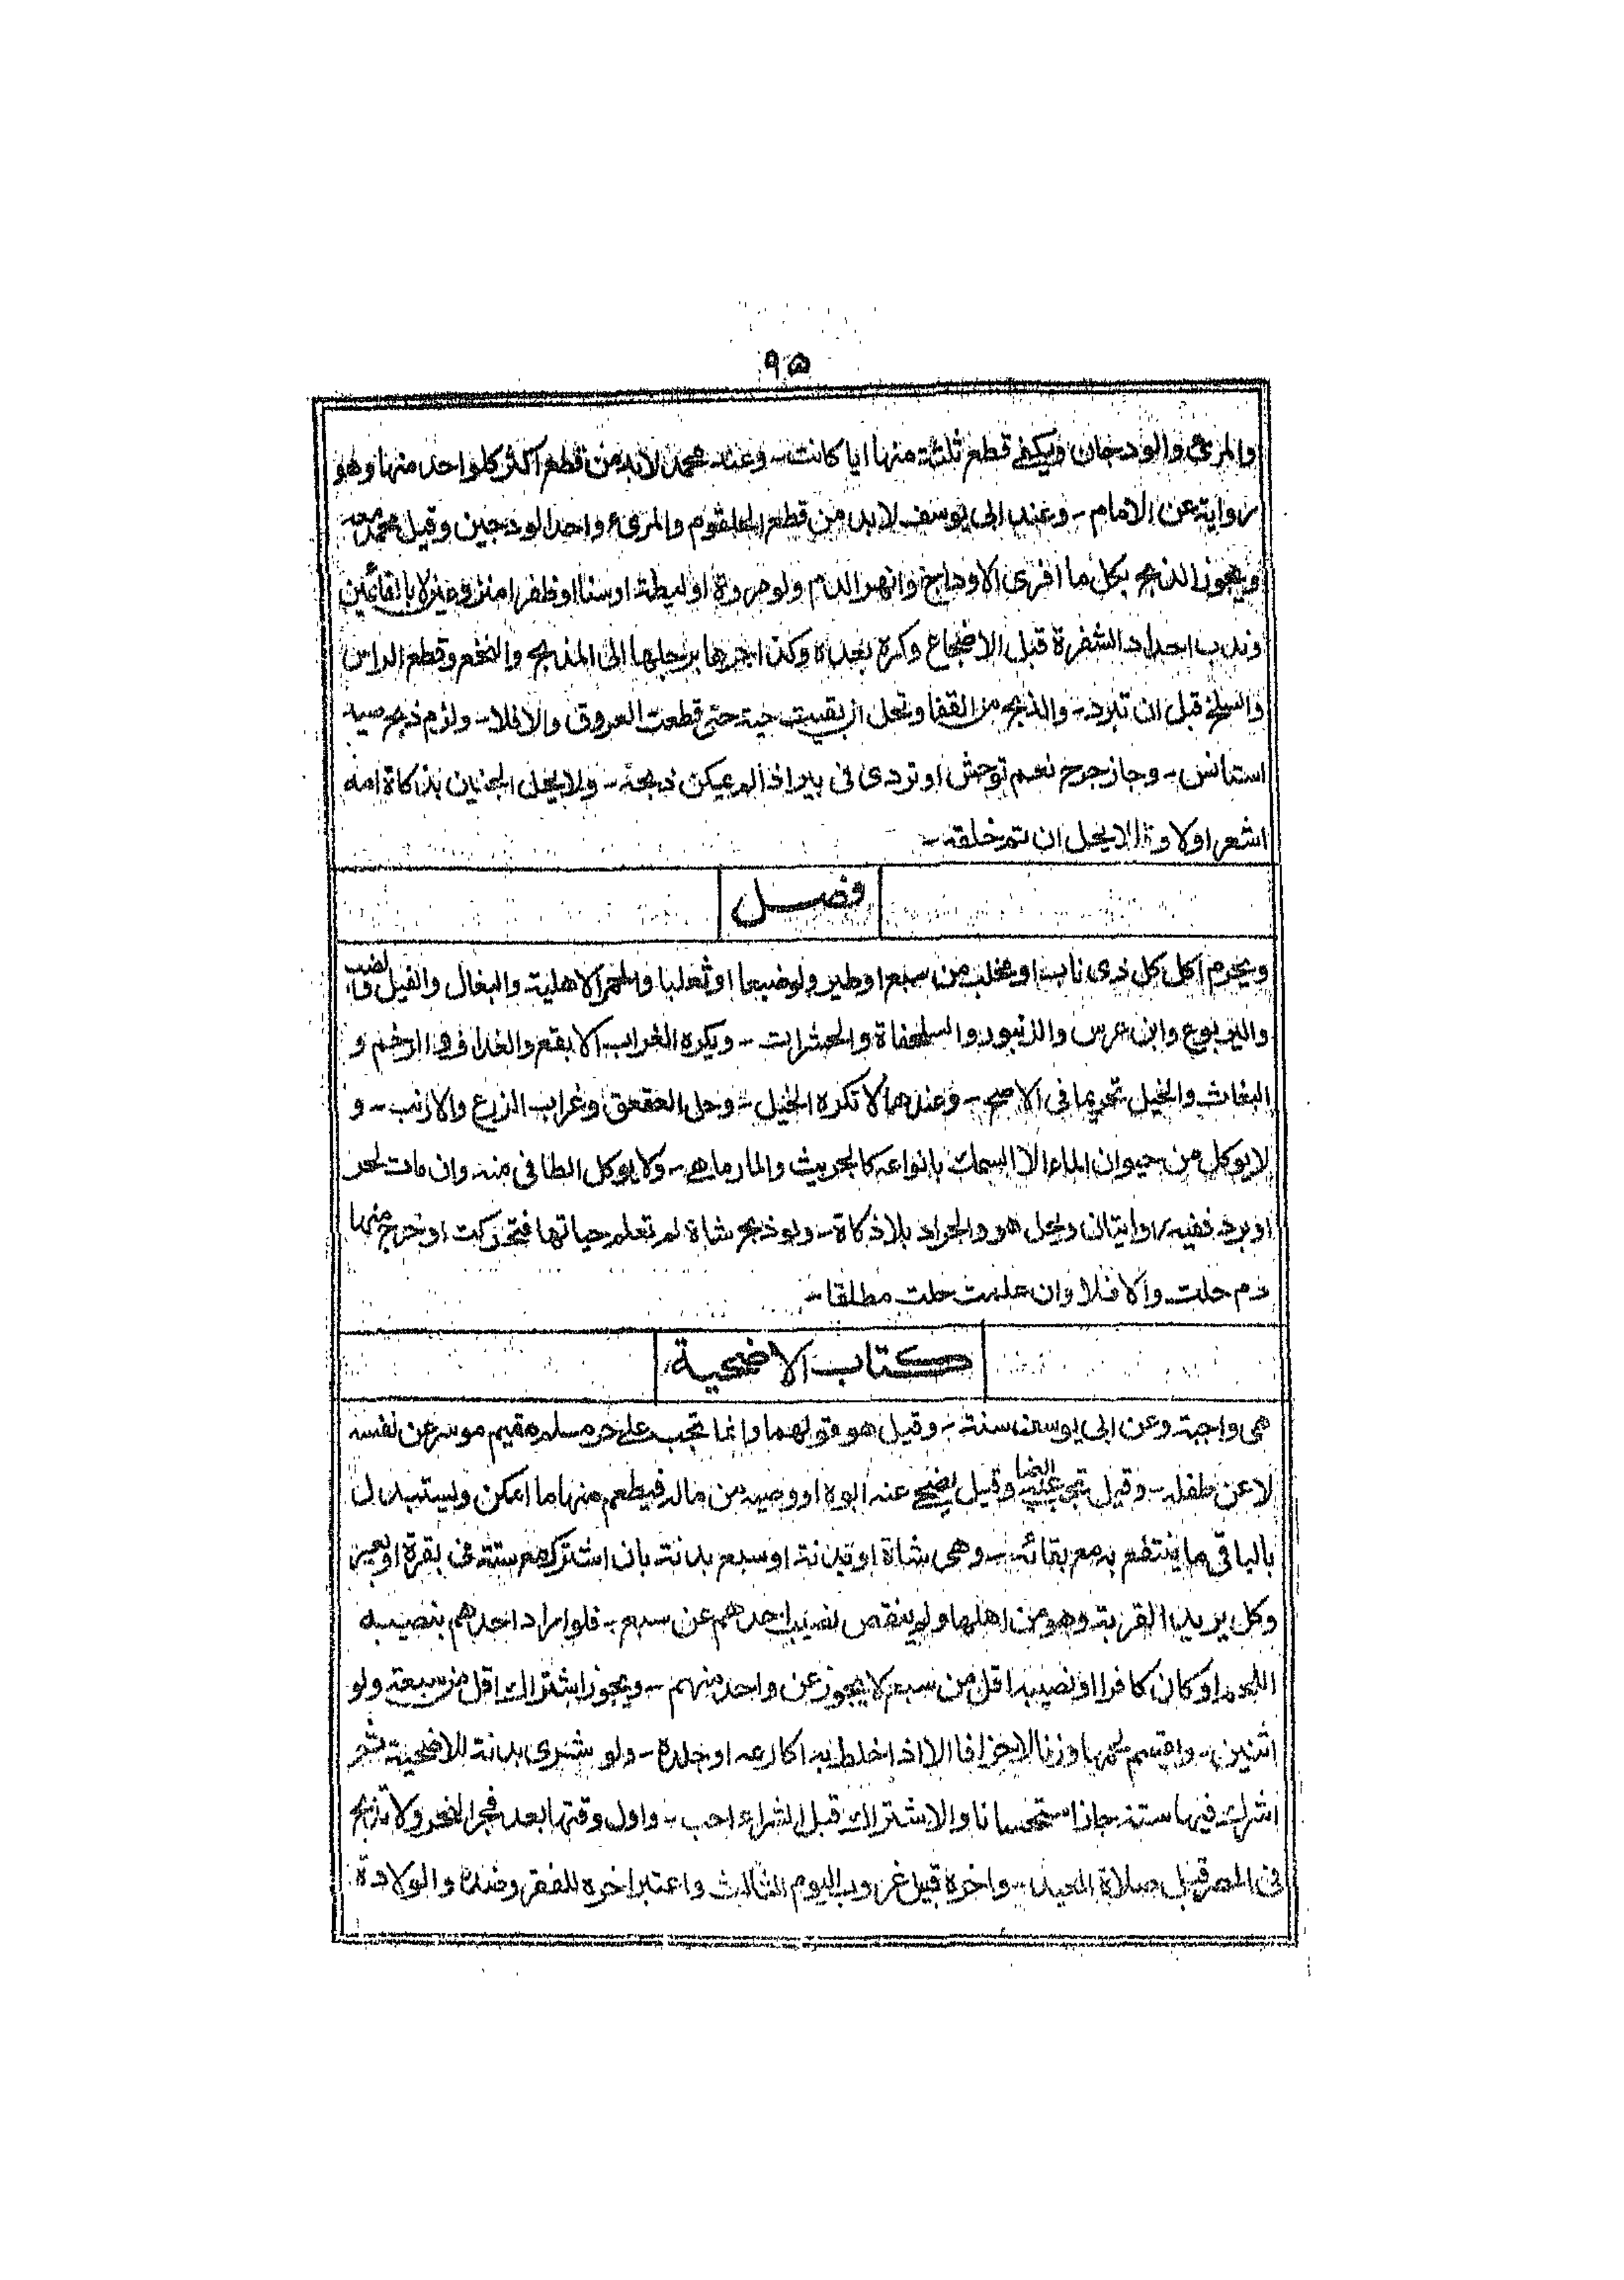 ٩٥
والمرئ والودجان ويكفى قطع ثلثة منها ايا كانت۔ وعند محمد لابد من قطع اكثر كلواحد منها وهو
رواية عن الامام۔ وعند ابى يوسف لابد من قطع الحلقوم والمرىء واحد الودجين وقيل محمد معه
ويجوز الذبح بكل ما افرى الاوداج وانهر الدم ولو مروة او ليطة او سنا او ظفرا منزوعين لا بالقائمين
وندب احداد الشفرة قبل الاضجاع وكره بعده وكذا جرها برجلها الى المذبح والنخع وقطع الراس
والسلخ قبل ان تبرد۔ والذبح من القفا وتحل ان بقيت حية حتى قطعت العروق والا فلا۔ ولزم ذبح صيد
استانس۔ وجاز جرح نعم توحش او تردى فى بير اذا لم يمكن ذبحه۔ ولا يحل الجنين بذكاة امه
اشعر اولا وقالا يحل ان تم خلقه۔
فصل
ويحرم اكل كل ذى ناب او مخلب من سبع او طير ولو ضبعا او ثعلبا والحمر الاهلية والبغال والفيل والضب
واليربوع وابن عرس والزنبور والسلحفاة والحشرات۔ ويكره الغراب الابقع والغداف والرخم و
البغاث والخيل تحريما فى الاصح۔ وعندهما لا تكره الخيل۔ وحل العقعق وغراب الزرع والارنب۔ و
لا يوكل من حيوان الماء الا السمك بانواعه كالجريث والمارماهى۔ ولا يوكل الطافى منه وان مات لحر
او برد ففيه روايتان ويحل هو والجراد بلا ذكاة۔ ولو ذبح شاة لم تعلم حياتها فتحركت او خرج منها
دم حلت والا فلا وان علمت حلت مطلقا۔
كتاب الاضحية
هى واجبة وعن ابى يوسف سنة۔ وقيل هو قولهما وانما تجب على حر مسلم مقيم موسر عن نفسه
لا عن طفله۔ وقيل تجب عليه ايضا وقيل يضحى عنه ابوه او وصيه من ماله فيطعم منها ما امكن ويستبدل
بالباقى ما ينتفع به مع بقائه۔ وهى شاة او بدنة او سبع بدنة بان اشترك مع ستة فى بقرة او بعير
وكل يريد القربة وهو من اهلها ولم ينقص نصيب احدهم عن سبع۔ فلو اراد احدهم بنصيبه
اللحم او كان كافرا او نصيبه اقل من سبع لا يجوز عن واحد منهم۔ ويجوز اشتراك اقل من سبعة ولو
اثنين۔ واقتسم لحمها وزنا لا جزافا الا اذا خلط به اكارعه او جلده۔ ولو شترى بدنة للاضحية ثم
اشرك فيها ستة جاز استحسانا والاشتراك قبل الشراء احب۔ واول وقتها بعد فجر النحر ولا تذبح
فى المصر قبل صلاة العيد۔ واخره قبيل غروب اليوم الثالث واعتبر اخره للفقر وضده والولادة